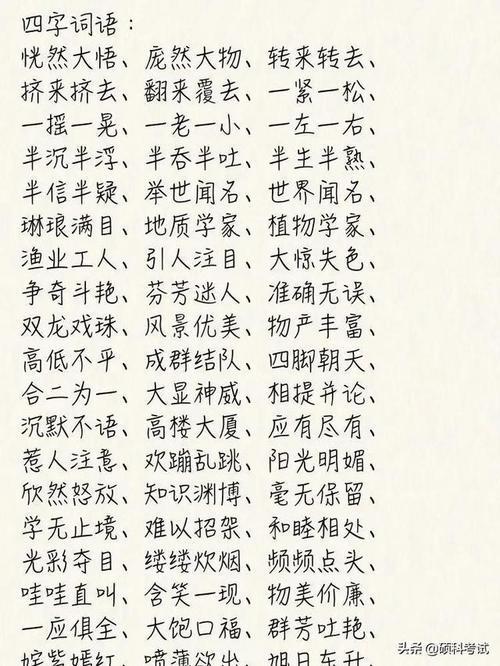 四字词语：
恍然大悟、庞然大物、转来转去、
挤来挤去、翻来覆去、一紧一松、
一摇一晃、一老一小、一左一右、
半沉半浮、半吞半吐、半生半熟、
半信半疑、举世闻名、世界闻名、
琳琅满目、地质学家、植物学家、
渔业工人、引人注目、大惊失色、
争奇斗艳、芬芳迷人、准确无误、
双龙戏珠、风景优美、物产丰富、
高低不平、成群结队、四脚朝天、
合二为一、大显神威、相提并论、
沉默不语、高楼大厦、应有尽有、
惹人注意、欢蹦乱跳、阳光明媚、
欣然怒放、知识渊博、毫无保留、
学无止境、难以招架、和睦相处、
光彩夺目、缕缕炊烟、频频点头、
哇哇直叫、含笑一现、物美价廉、
一应俱全、大饱口福、群芳吐艳、
姹紫嫣红、喷薄欲出、旭日东升、
头条 @硕科考试